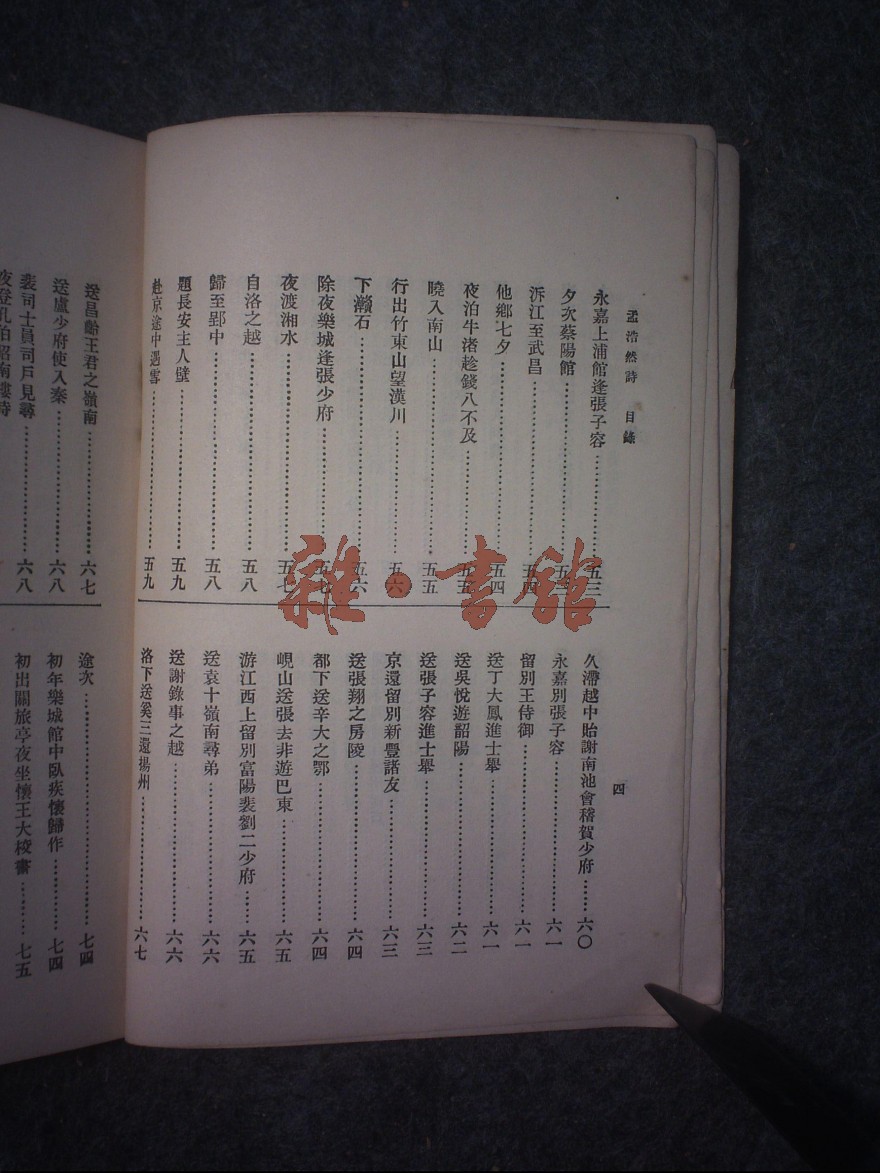 孟浩然詩　目錄
四
永嘉上浦館逢張子容…………五三
夕次蔡陽館…………五三
泝江至武昌…………五四
他鄉七夕…………五四
夜泊牛渚趁錢八不及…………五五
曉入南山…………五五
行出竹東山望漢川…………五六
下灨石…………五六
除夜樂城逢張少府…………五七
夜渡湘水…………五七
自洛之越…………五八
歸至郢中…………五八
題長安主人壁…………五九
赴京途中遇雪…………五九
久滯越中貽謝南池會稽賀少府……六〇
永嘉別張子容…………六一
留別王侍御…………六一
送丁大鳳進士舉…………六一
送吳悅遊韶陽…………六二
送張子容進士舉…………六三
京還留別新豐諸友…………六三
送張翔之房陵…………六四
都下送辛大之鄂…………六四
峴山送張去非遊巴東…………六五
游江西上留別富陽裴劉二少府……六五
送袁十嶺南尋弟…………六六
送謝錄事之越…………六六
洛下送奚三還揚州…………六七
送昌齡王君之嶺南…………六七
送盧少府使入秦…………六八
裴司士員司戶見尋…………六八
途次…………七四
初年樂城館中臥疾懷歸作…………七四
初出關旅亭夜坐懷王大校書………七五
雜·書館